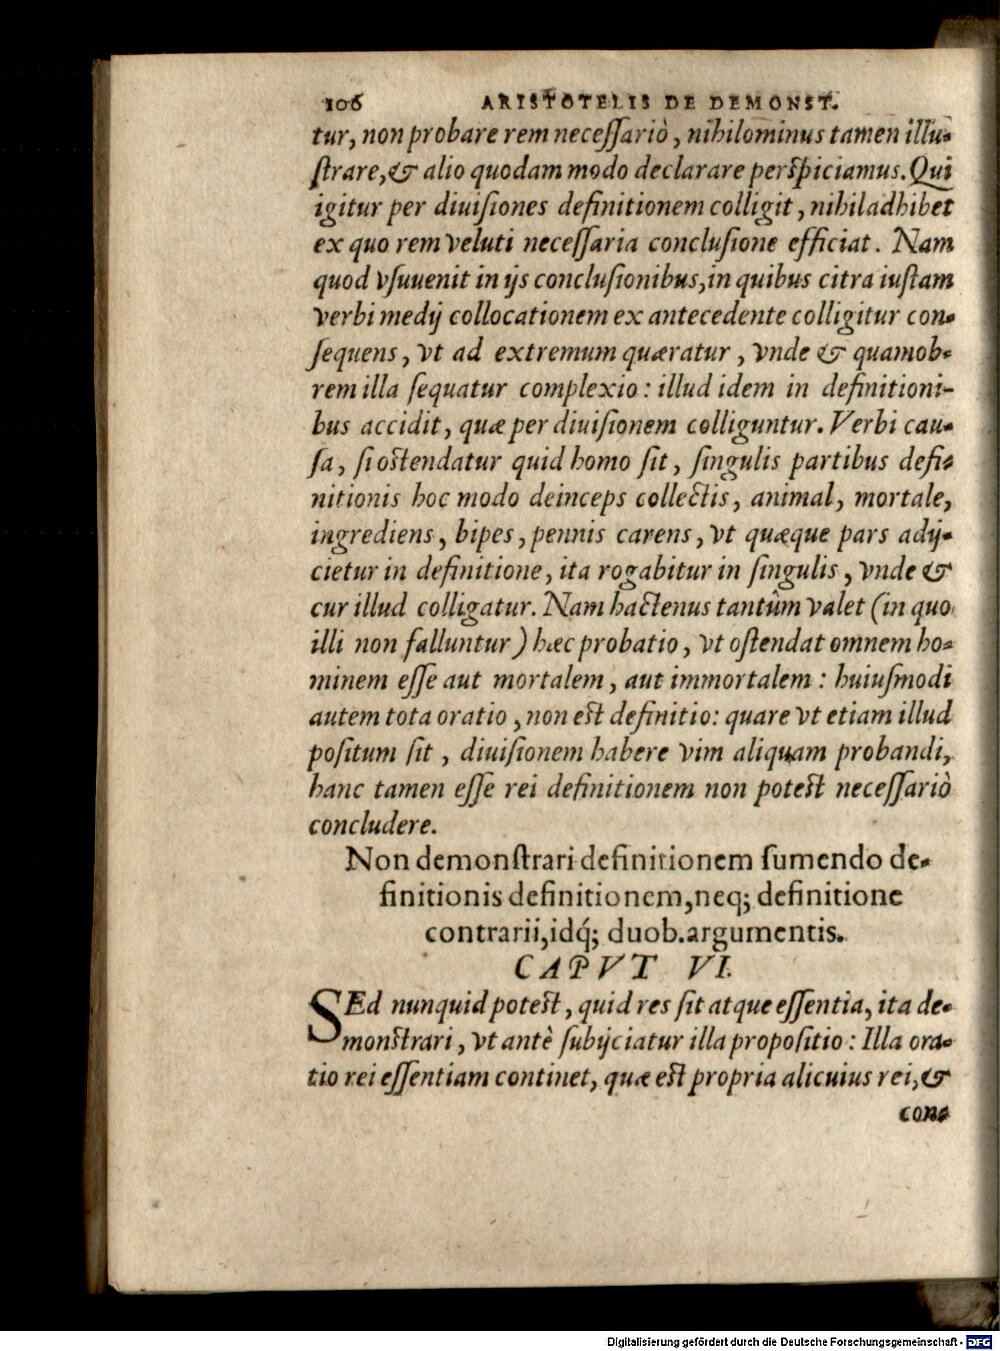 106 ARISTOTELIS DE DEMONST.
tur, non probare rem necessariò, nihilominus tamen illu-
strare, & alio quodam modo declarare perspiciamus. Qui
igitur per diuisiones definitionem colligit, nihil adhibet
ex quo rem veluti necessaria conclusione efficiat. Nam
quod vsuuenit in ijs conclusionibus, in quibus citra iustam
verbi medij collocationem ex antecedente colligitur con-
sequens, vt ad extremum quæratur, vnde & quamob-
rem illa sequatur complexio: illud idem in definitioni-
bus accidit, quæ per diuisionem colliguntur. Verbi cau-
sa, si ostendatur quid homo sit, singulis partibus defi-
nitionis hoc modo deinceps collectis, animal, mortale,
ingrediens, bipes, pennis carens, vt quæque pars adij-
cietur in definitione, ita rogabitur in singulis, vnde &
cur illud colligatur. Nam hactenus tantûm valet (in quo
illi non falluntur) hæc probatio, vt ostendat omnem ho-
minem esse aut mortalem, aut immortalem: huiusmodi
autem tota oratio, non est definitio: quare vt etiam illud
positum sit, diuisionem habere vim aliquam probandi,
hanc tamen esse rei definitionem non potest necessariò
concludere.
Non demonstrari definitionem sumendo de-
finitionis definitionem, neq; definitione
contrarii, idq́; duob. argumentis.
CAPVT VI.
SEd nunquid potest, quid res sit atque essentia, ita de-
monstrari, vt antè subijciatur illa propositio: Illa ora-
tio rei essentiam continet, quæ est propria alicuius rei, &
con-
Digitalisierung gefördert durch die Deutsche Forschungsgemeinschaft - DFG